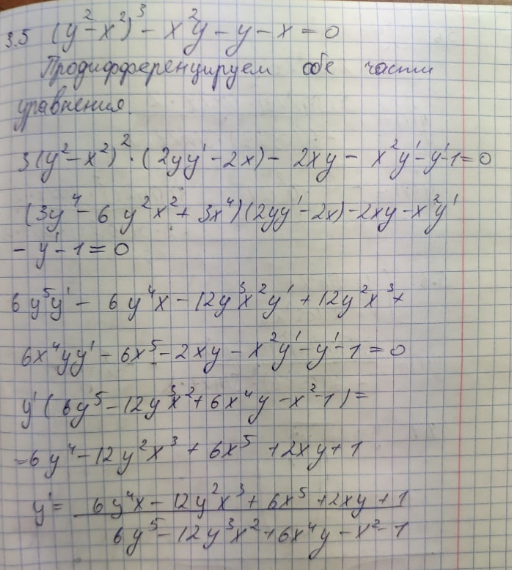 3.5 (y²-x²)³ - x²y - y - x = 0
Продифференцируем обе части
уравнения.
3(y²-x²)²·(2yy'-2x) - 2xy - x²y'-y'-1=0
(3y⁴-6y²x²+3x⁴)(2yy'-2x)-2xy-x²y'
-y'-1=0
6y⁵y'-6y⁴x-12y³x²y'+12y²x³+
6x⁴yy'-6x⁵-2xy-x²y'-y'-1=0
y'(6y⁵-12y³x²+6x⁴y-x²-1)=
=6y⁴-12y²x³+6x⁵+2xy+1
y'= 6y⁴x-12y²x³+6x⁵+2xy+1
6y⁵-12y³x²+6x⁴y-x²-1